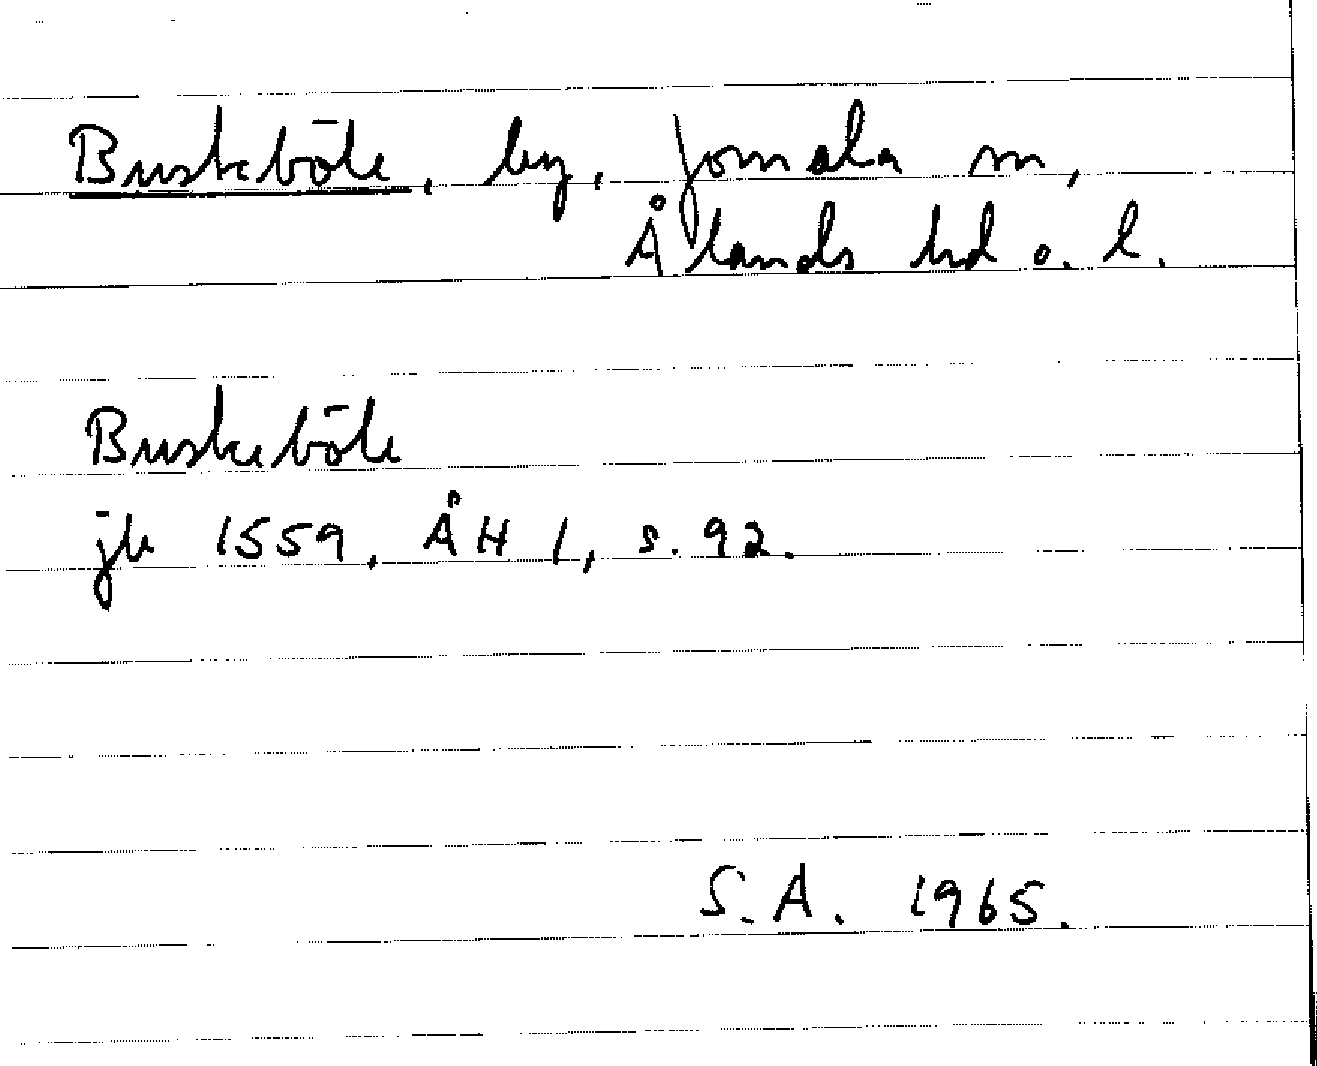 Buskeböle, by, Jomala sn,
Ålands hd o. l.
Buskeböle
jb 1559, ÅH 1, s. 92.
S.A. 1965.